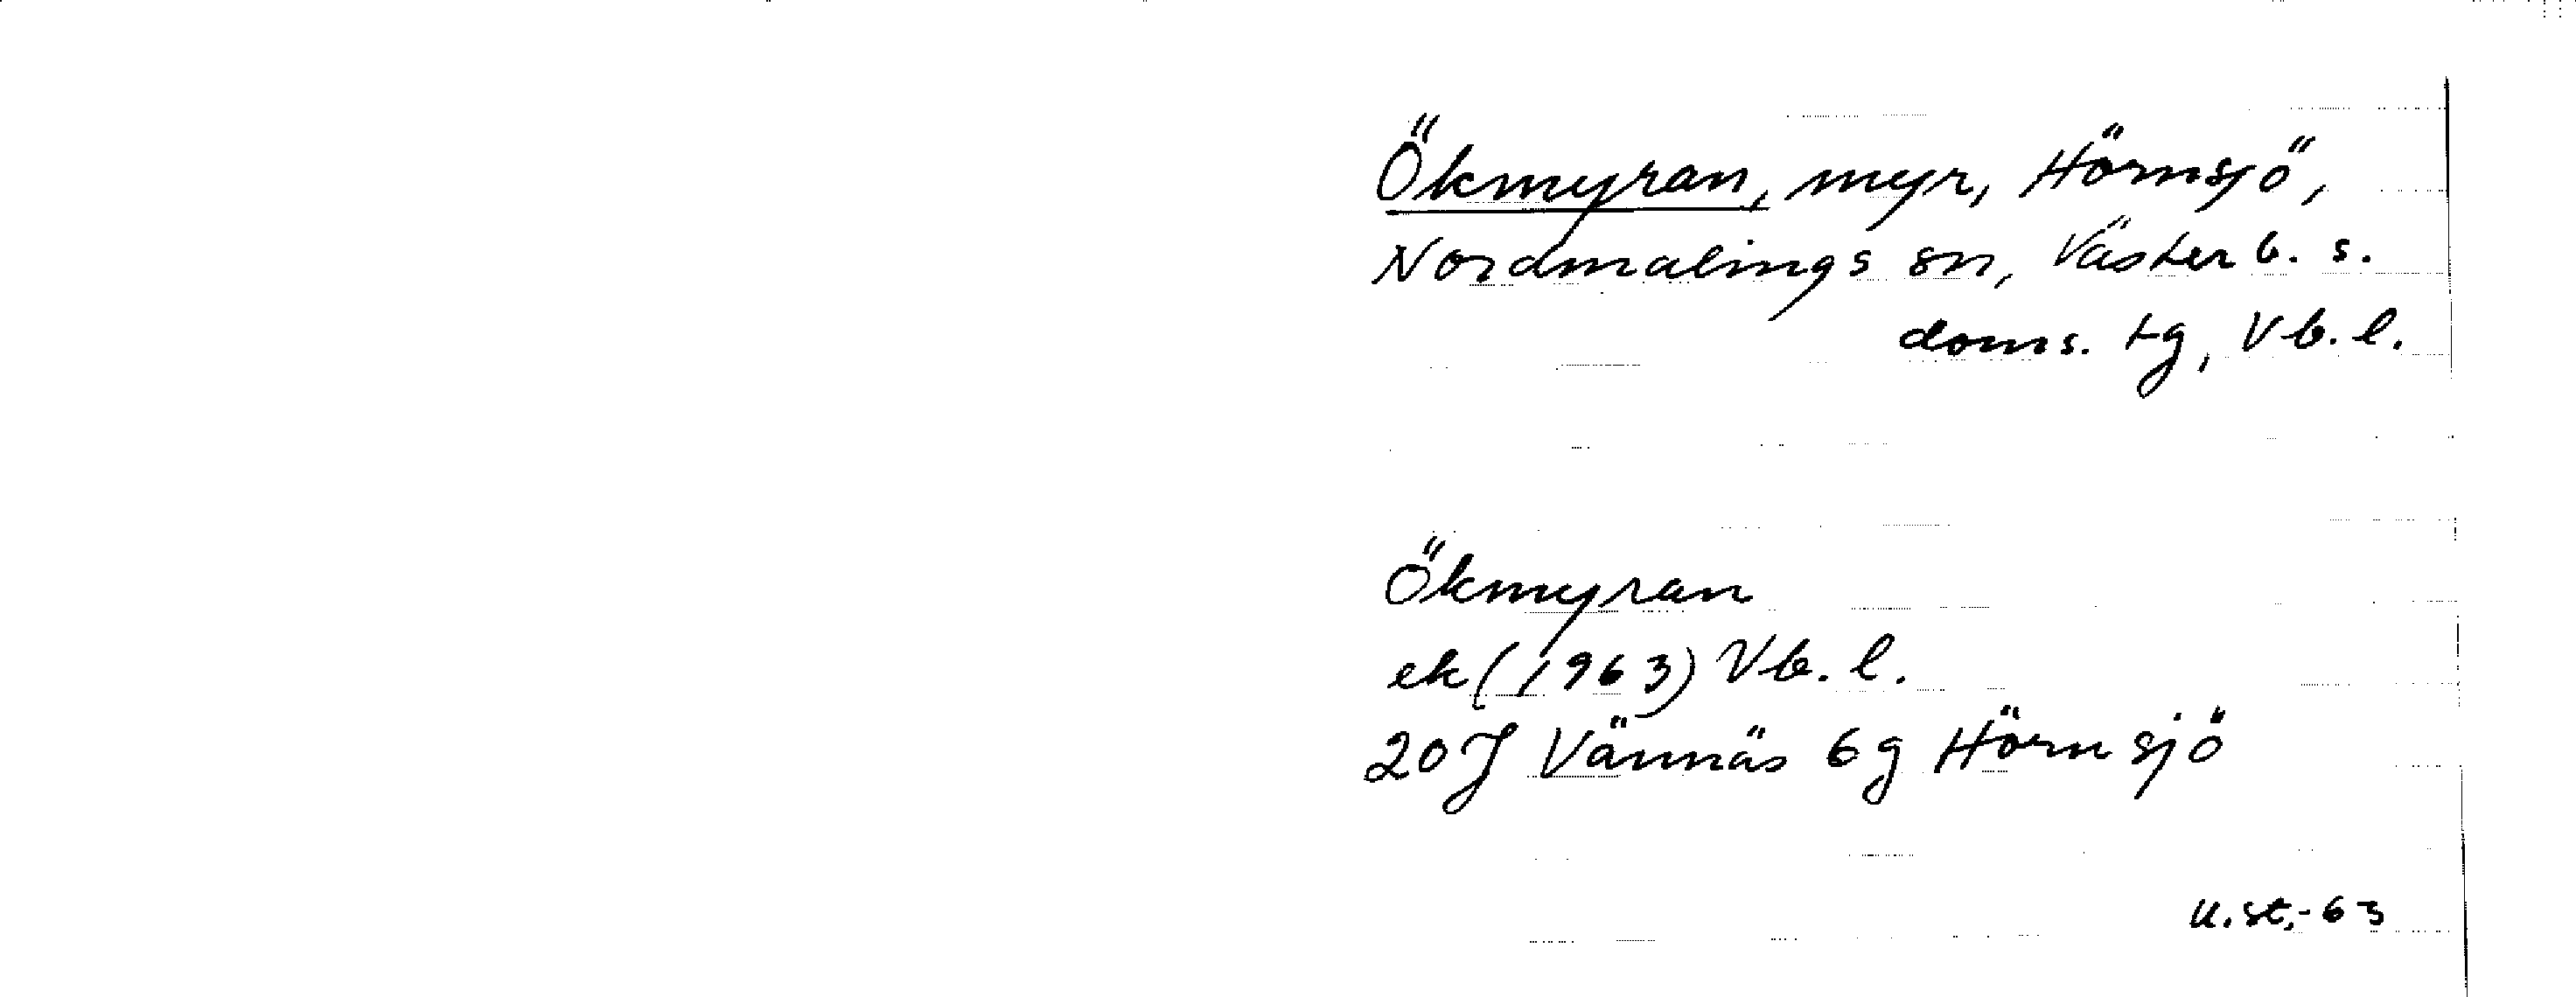 Ökmyran, myr, Hörnsjö,
Nordmalings sn, Västerb. s.
doms. tg, Vb. l.
Ökmyran
ek (1963) Vb. l.
20J Vännäs 6g Hörnsjö
U. st. -63